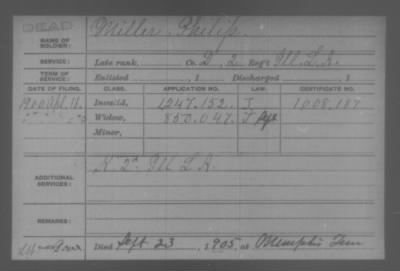 DEAD
NAME OF SOLDIER: Miller Philip.
SERVICE: Late rank, Co. D, 2, Reg't Ill. L. A.
TERM OF SERVICE: Enlisted , 1 Discharged , 1
DATE OF FILING. CLASS. APPLICATION NO. LAW. CERTIFICATE NO.
1900 Apl. 11. Invalid, 1247.152. J 1.008.187
Widow, 850.047. J
Minor,
ADDITIONAL SERVICES: K 2d Ill L A.
REMARKS:
Died Sept 23, 1905, at Memphis Tenn